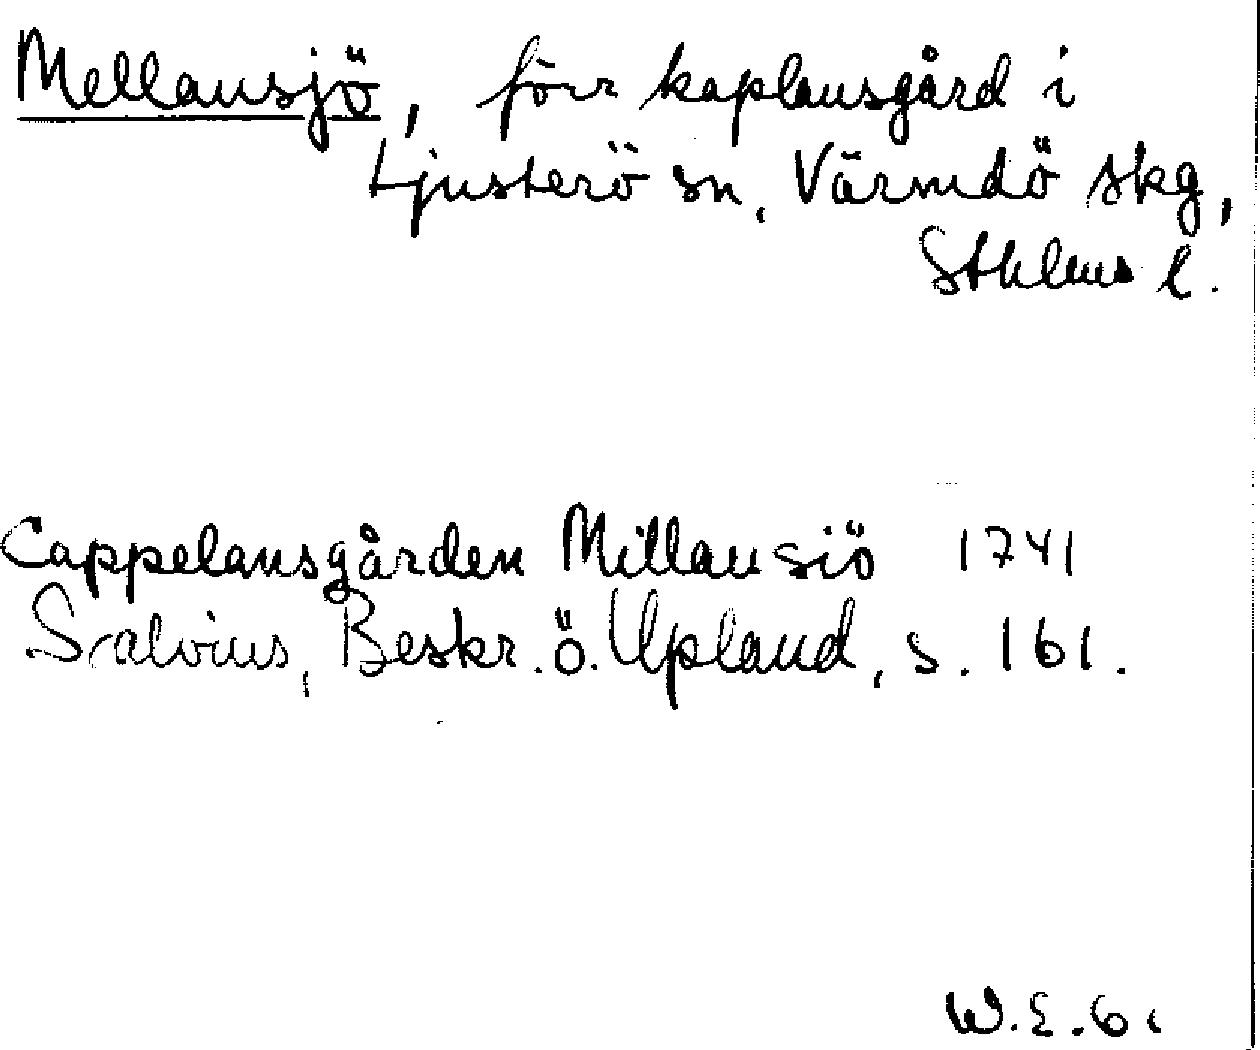 Mellansjö, förr kaplansgård i
Ljusterö sn, Värmdö skg,
Sthlms l.
Cappelansgården Millansiö 1741
Salvius, Beskr. ö. Upland, s. 161.
W.E.G.